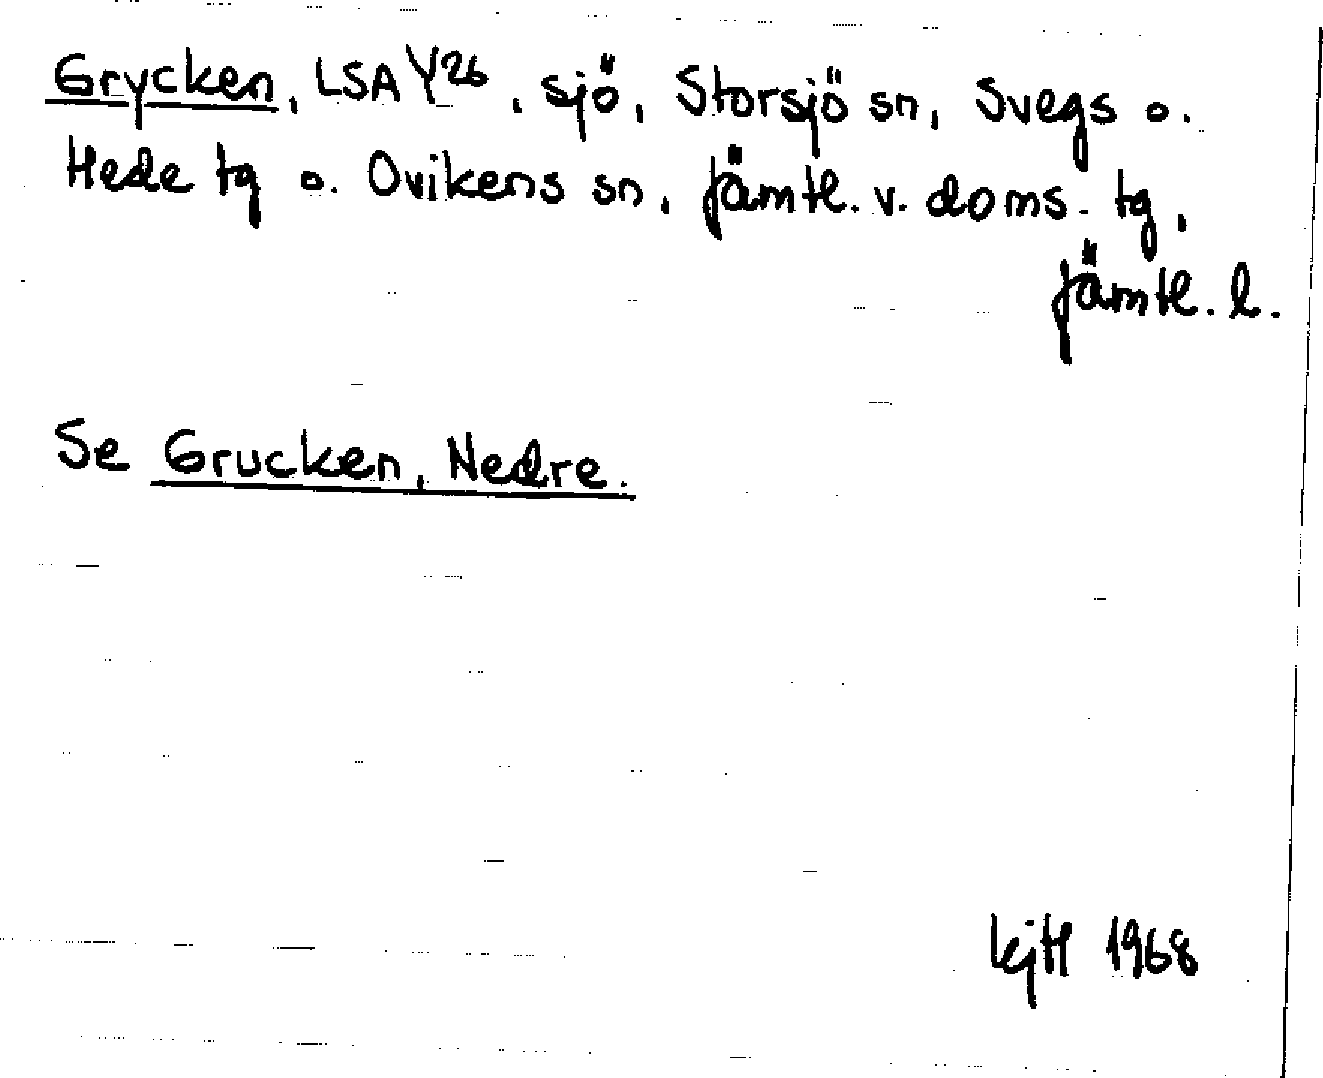 Grycken, LSA Y26, sjö, Storsjö sn, Svegs o.
Hede tg o. Ovikens sn, Jämtl. v. doms. tg,
Jämtl. l.
Se Grucken, Nedre.
1968